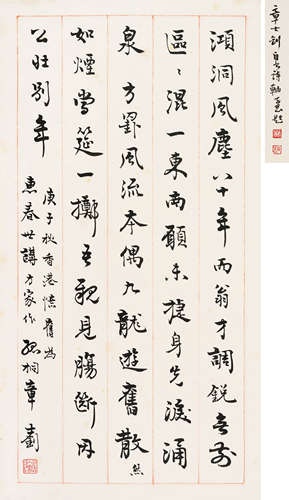 澒洞風塵八十年両翁才調銳無前
區〻混一東南願未捷身先淚涌
泉方罫風流本偶九龍遊舊散然
如煙當筵一擲吾親見腸斷丹
公壯別年
庚子秋香港懷舊為
惠春世講方家作孤桐章士釗
章士釗自書詩軸